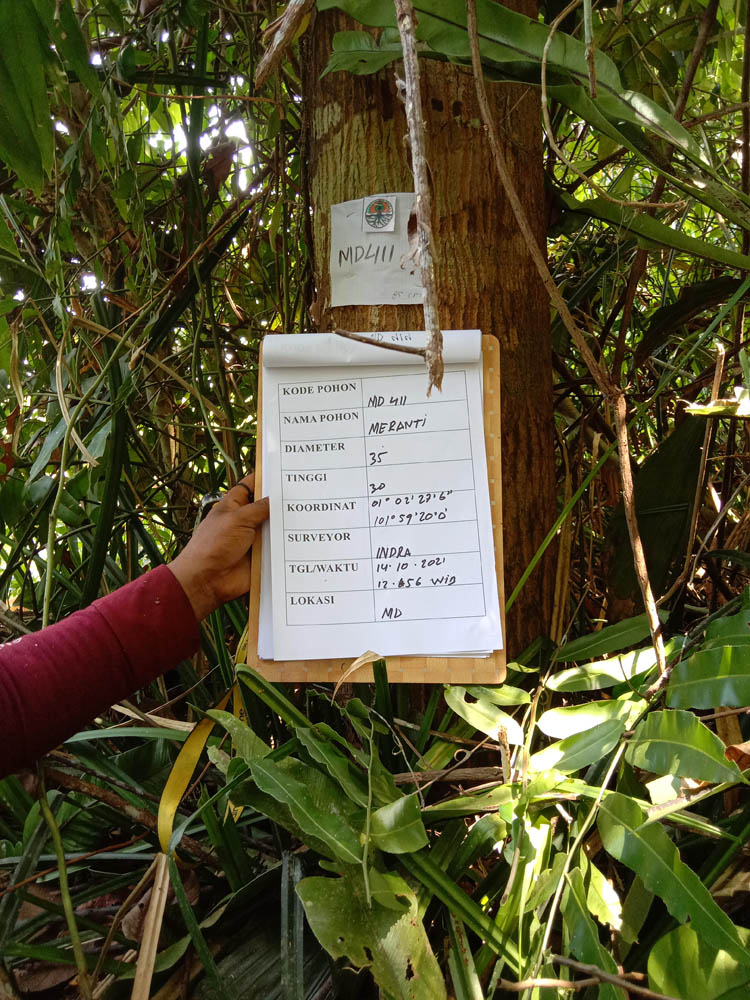 MD411
KODE POHON MD 411
NAMA POHON MERANTI
DIAMETER 35
TINGGI 30
KOORDINAT 01° 02' 27'6"
101° 59' 20'0"
SURVEYOR INDRA
TGL/WAKTU 14·10·2021
12·56 WIB
LOKASI MD